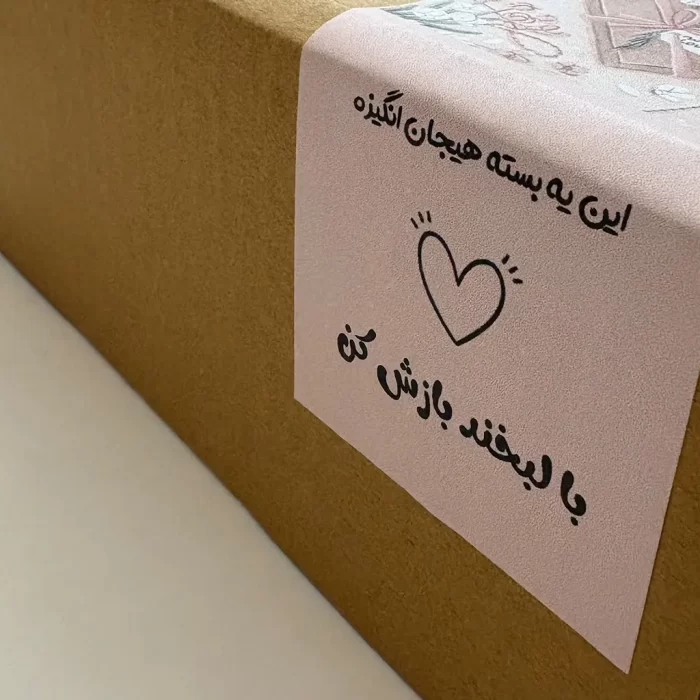 این یه بسته هیجان انگیزه
با لبخند بازش کن